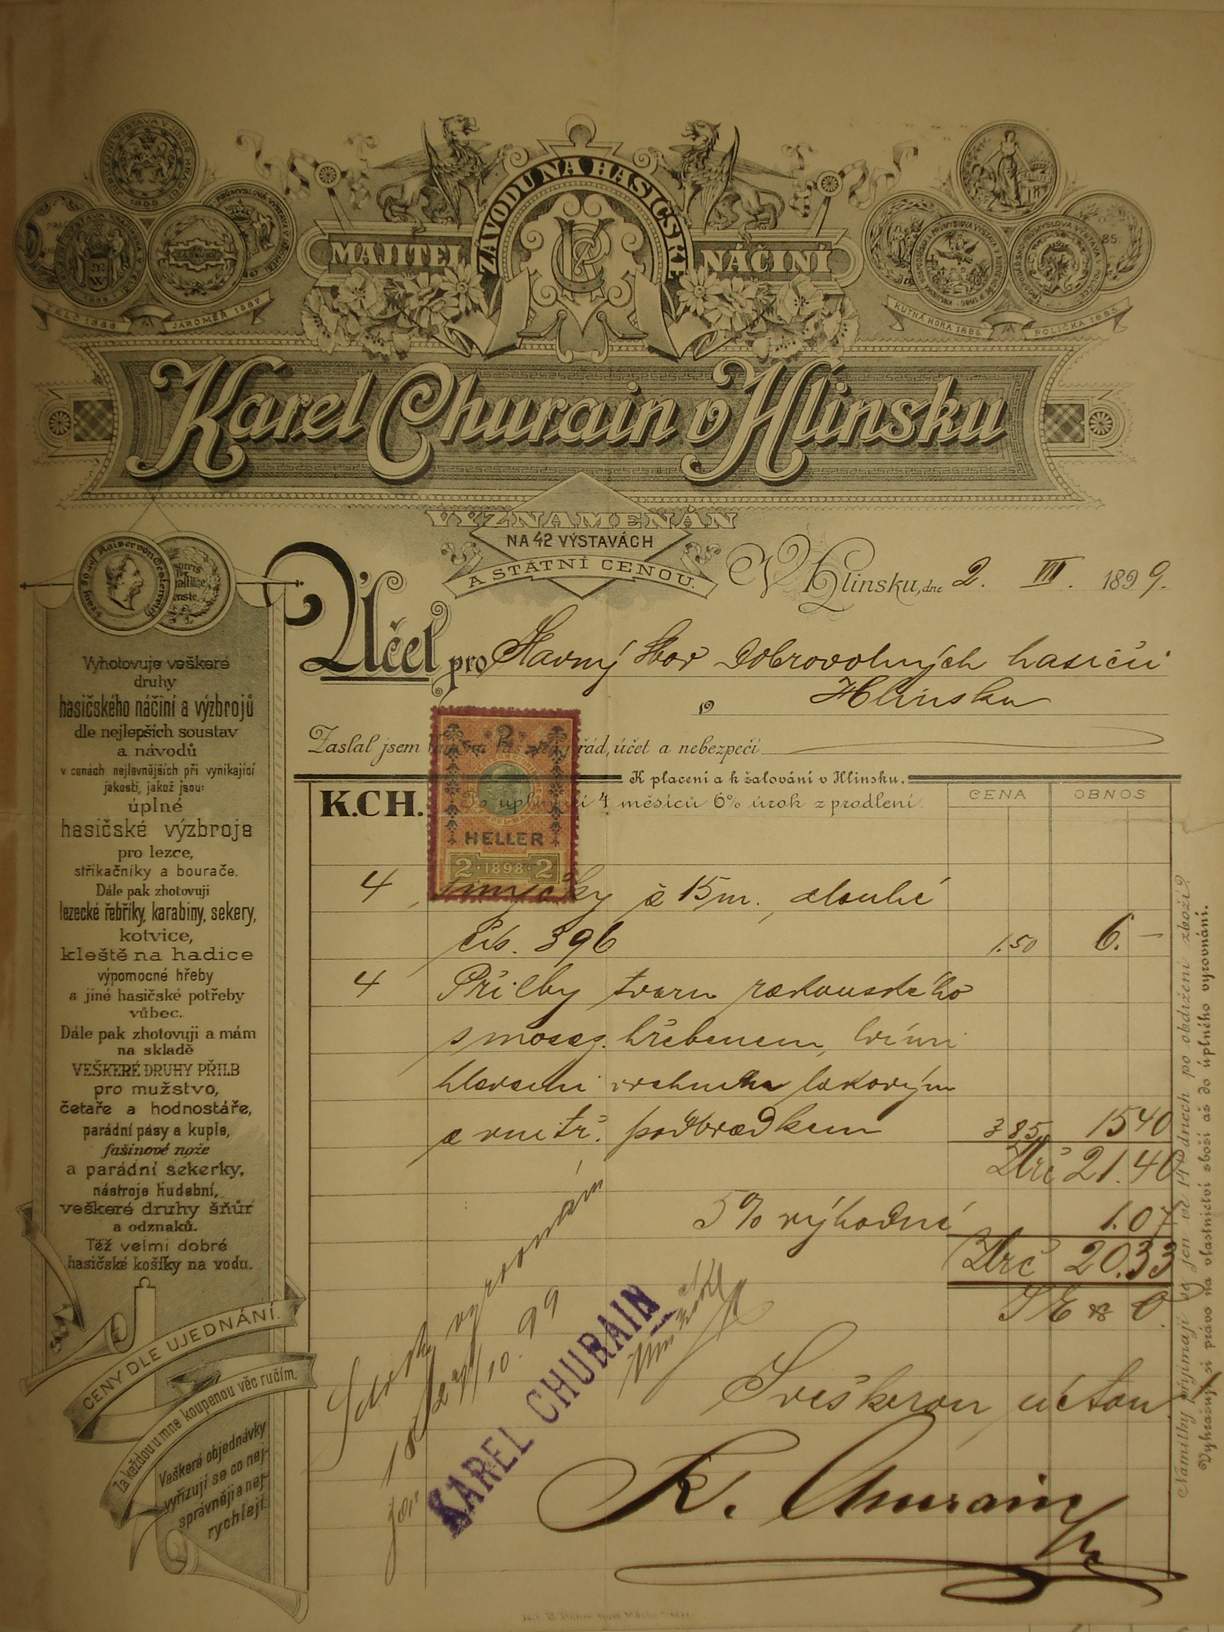 MAJITEL ZÁVODU NA HASIČSKÉ NÁČINÍ
JAROMĚŘ 1887
KUTNÁ HORA 1886
POLIČKA 1885
Karel Churain v Hlinsku
VYZNAMENÁN
NA 42 VÝSTAVÁCH
A STÁTNÍ CENOU.
V Hlinsku, dne 2. VII. 1899.
Účet pro Slavný Sbor Dobrovolných hasičů
v Hlinsku
Zaslal jsem řád, účet a nebezpečí
K placení a k žalování v Hlinsku.
K.CH. 4 měsíců 6% úrok z prodlení.
CENA OBNOS
2
HELLER
2 · 1898 · 2
4 à 15 m., dlouhé
čís. 396 1.50 6.—
4 Přilby tvaru rakouského
s mosaz. hřebenem,
lakovým
a vnitř. podbradkem 3 85 15 40
Zlrč 21.40
5% výhodné 1.07
Zlrč 20.33
S E & O.
vyrovnám
27/10 99
KAREL CHURAIN
S veškerou úctou
K. Churain
Vyhotovuje veškeré
druhy
hasičského náčiní a výzbrojů
dle nejlepších soustav
a návodů
v cenách nejlevnějších při vynikající
jakosti, jakož jsou:
úplné
hasičské výzbroje
pro lezce,
stříkačníky a bourače.
Dále pak zhotovuji
lezecké řebříky, karabiny, sekery,
kotvice,
kleště na hadice
výpomocné hřeby
a jiné hasičské potřeby
vůbec.
Dále pak zhotovuji a mám
na skladě
VEŠKERÉ DRUHY PŘILB
pro mužstvo,
četaře a hodnostáře,
parádní pásy a kuple,
fašinové nože
a parádní sekerky,
nástroje hudební,
veškeré druhy šňůr
a odznaků.
Též velmi dobré
hasičské košíky na vodu.
CENY DLE UJEDNÁNÍ.
Za každou u mne koupenou věc ručím.
Veškeré objednávky
vyřizuji se co nej-
správněji a nej-
rychleji.
Námitky přijímají se jen ve 14 dnech po obdržení zboží?
Vyhražuji si právo na vlastnictví zboží až do úplného vyrovnání.